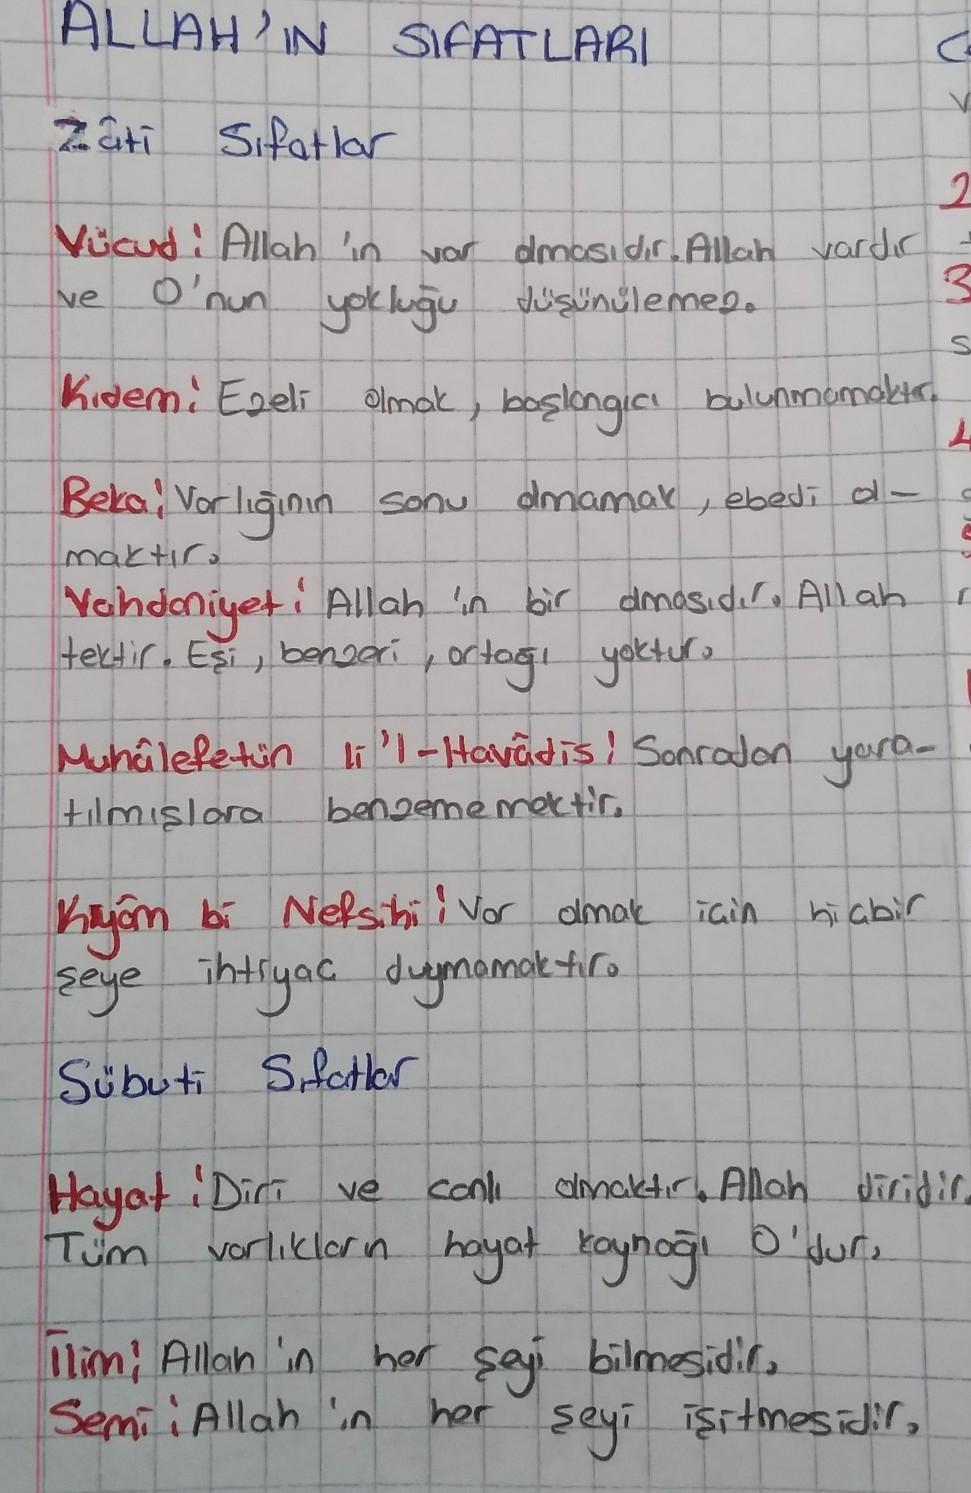 ALLAH'IN SIFATLARI
Zâti Sıfatlar
Vücud: Allah'ın var olmasıdır. Allah vardır
ve O'nun yokluğu düşünülemez.
Kıdem: Ezeli olmak, başlangıcı bulunmamaktır.
Beka: Varlığının sonu olmamak, ebedi ol-
maktır.
Vahdaniyet: Allah'ın bir olmasıdır. Allah
tektir. Eşi, benzeri, ortağı yoktur.
Muhâlefetün li'l-Havâdis: Sonradan yara-
tılmışlara benzememektir.
Kıyâm bi Nefsihi: Var olmak için hiçbir
şeye ihtiyaç duymamaktır.
Sübuti Sıfatlar
Hayat: Diri ve canlı olmaktır. Allah diridir.
Tüm varlıkların hayat kaynağı O'dur.
İlim: Allah'ın her şeyi bilmesidir.
Semi: Allah'ın her şeyi işitmesidir.
2
3
4